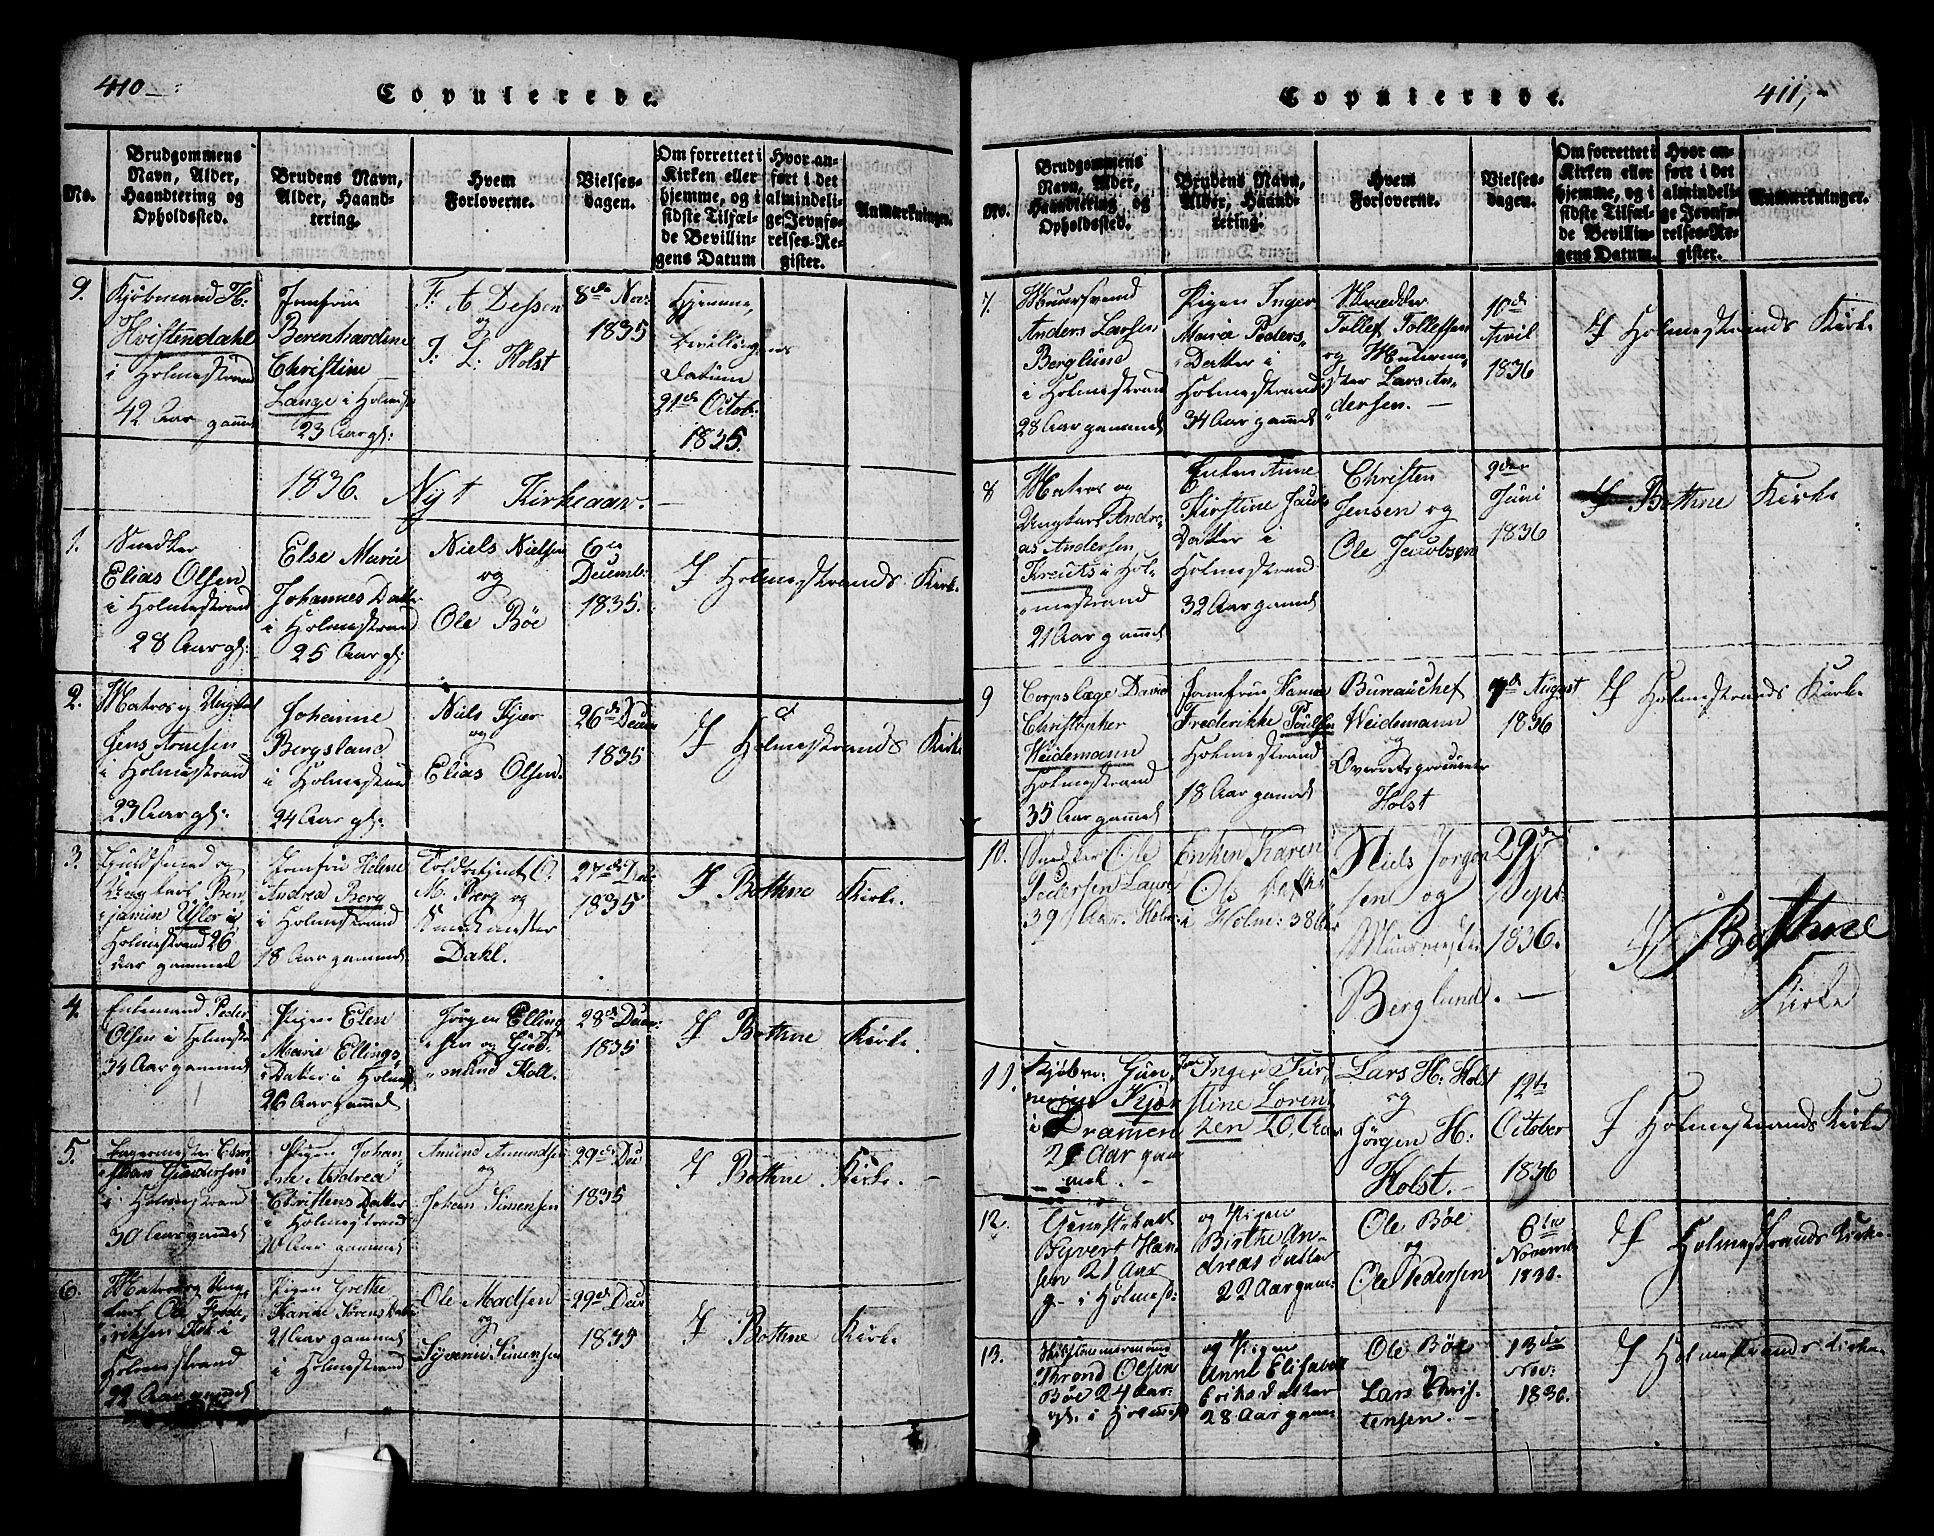 410
Copulerede.
No.
Brudgommens
Navn, Alder,
Haandtering og
Opholdssted.
Brudens Navn,
Alder, Haand-
tering.
Hvem
Forloverne.
Vielses-
dagen.
Om forrettet i
Kirken eller
hjemme, og i
sidste Tilfæl-
de Bevillin-
gens Datum
Hvor an-
ført i det
almindeli-
ge Jevnfø-
relses-Re-
gister.
Anmærkninger.
9.
Kjöbmand H:
Hvistendahl
i Holmestrand
42 Aar gamel
Jomfrue
Berenhardine
Christine
Lange i Holmest
23 Aar gl:
F: A Dessen
og
J: L: Holst
8de Nov:
1835
Hjemme,
Bevillingens
Datum
21de Octob:
1835.
1836. Nyt Kirkeaar.
1.
Snedker
Elias Olsen
i Holmestrand
28 Aar gl:
Else Marie
Johannes Datter
i Holmestrand
25 Aar gl:
Niels Nielsen
og
Ole Böe
6te
Decemb:
1835.
I Holmestrands Kirke.
2.
Matros og Ungkarl
Jens Arnesen
i Holmestrand
23 Aar gl:
Johanne
Bergsland
i Holmestrand
24 Aar gl:
Niels Kjær
og
Elias Olsen.
26de Decem
1835
I Holmestrands Kirke
3.
Guldsmed og
Ungkarl Ben-
jamine
i
Holmestrand 26
Aar gammel
Jomfru Helene
Andrea Berg
i Holmestrand
18 Aar gammel
Toldbetjent O.
M: Berg og
Dahl.
27de Dec:
1835
I Bothne Kirke.
4.
Enkemand Peder
Olsen i Holmestr
34 Aar gammel
Pigen Elen
Marie Ellings
Datter i Holmest
26 Aar gammel
Jörgen Elling
sen og Gud-
mund Moll.
28de Decem
1835
I Bothne Kirke.
5.
Gundersen
i Holmestrand
30 Aar gammel
Pigen Johan
ne Andrea
Christens Datter
i Holmestrand
20 Aar gammel
Amund Amundsen
og
Johan Simensen
29de Dec
1835
I Bothne Kirke.
6.
Matros og Ung-
karl Ole Frede
riksen i
Holmestrand
22 Aar gammel
Pigen Grethe
Karine Sörens Datter
21 Aar gammel
i Holmestrand
Ole Madsen
og
Syverin Simensen
29de Dec
1835
I Bothne Kirke
411,
Copulerede.
No.
Brudgommens
Navn, Alder,
Haandtering og
Opholdssted.
Brudens Navn,
Alder, Haand-
tering.
Hvem
Forloverne.
Vielses-
dagen.
Om forrettet i
Kirken eller
hjemme, og i
sidste Tilfæl-
de Bevillin-
gens Datum.
Hvor an-
ført i det
almindeli-
ge Jevnfø-
relses-Re-
gister.
Anmærkninger.
7.
Muursvend
Anders Larsen
Berglund
i Holmestrand
28 Aar gammel
Pigen Inger
Maria Peders-
Datter i
Holmestrand
34 Aar gammel
Skrædder
Tollef Tollefsen
og Muurme-
ster Lars An-
dersen.
10de
April
1836
I Holmestrands Kirke
8
Matros og
Ungkarl Andre-
as Andersen
Kreuts i Hol-
mestrand
21 Aar gammel
Enken Anne
Kirstine Jacobs
Datter i
Holmestrand
32 Aar gammel
Christen
Jensen og
Ole Jacobsen
2den
Juni
1836
I Bothne Kirke
9
Corpslæge David
Christopher
Weidemann
Holmestrand
35 Aar gammel
Jomfrue Hanna
Frederikke Poulsen
Holmestrand
18 Aar gammel
Bureauchef
Weidemann
og
Overretsprocurator
Holst
7de August
1836
I Holmestrands Kirke
10.
Snedker Ole
Pedersen Laure
39 Aar. Holm:
Enken Karen
Ols Datter
i Holm: 38 Aar
Niels Jorgen
sen og
Muurmester
Berglund.
29de
Sept
1836.
I Bothne
Kirke
11.
Kjöbm: Gun-
nerius Kjær
i Dramen
29 Aar gam
mel.
Jomf Inger Kir-
stine Loren-
zen 20 Aar
Lars H: Holst
og
Jörgen H:
Holst.
12te
October
1836
I Holmestrands Kirke
12.
Syvert Han
sen 21 Aar
g- i Holmest:
og Pigen
Birthe An-
dreas datter
22 Aar gam:
Ole Böe
og
Ole Pedersen
6te
Novemb
1836.
I Holmestrands Kirke
13.
Skibstømmermand
Thrond Olsen
Böe 24 Aar
gl. i Holmest
og Pigen
Anne Elisabeth
Eriks datter
28 Aar gam:
Ole Böe
og
Lars Chris-
tensen.
13de
Nov:
1836.
I Holmestrands Kirke